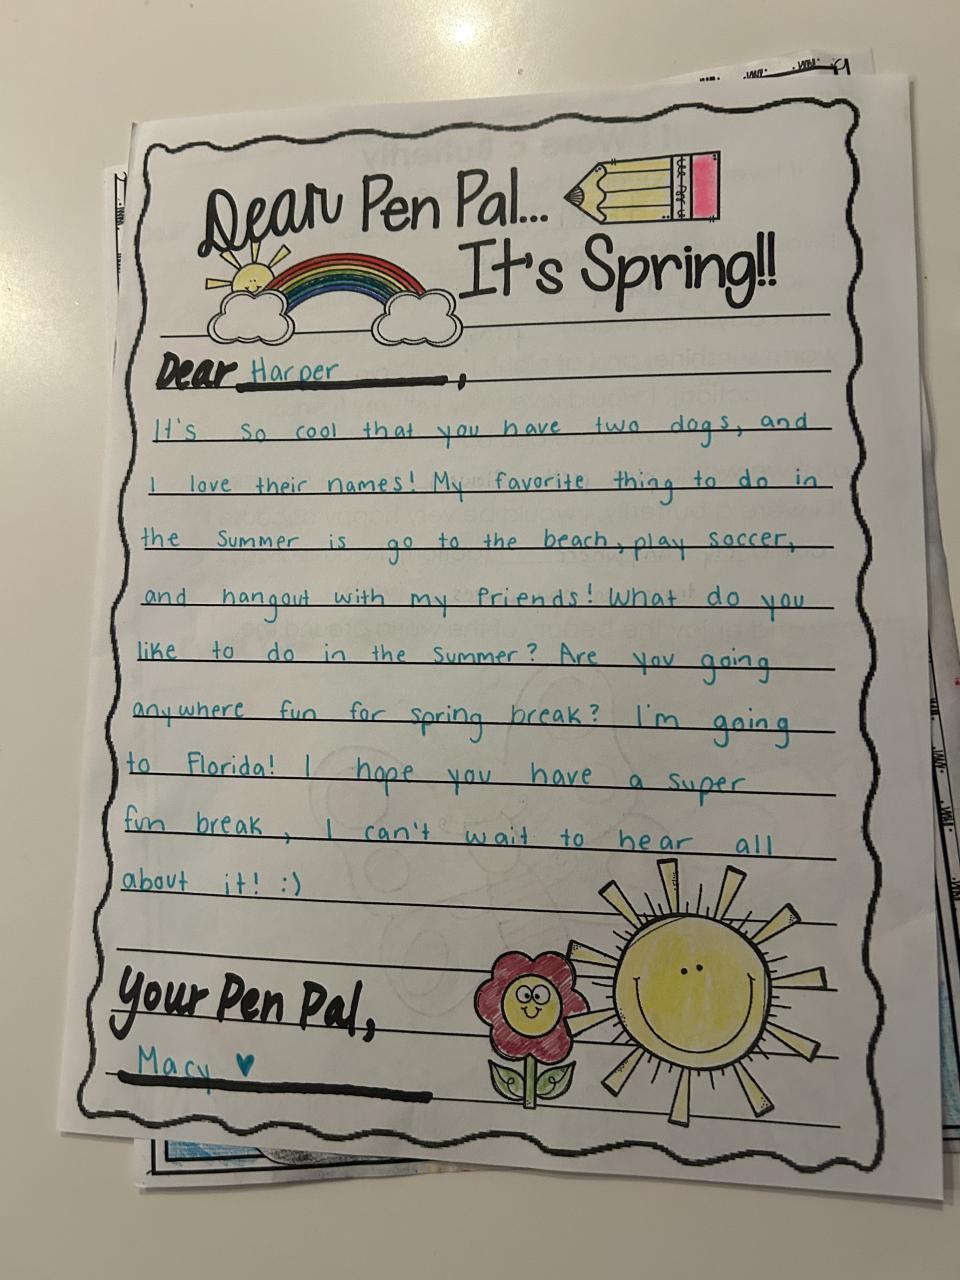 Dear Pen Pal...
It's Spring!!
Dear Harper,
It's so cool that you have two dogs, and
I love their names! My favorite thing to do in
the Summer is go to the beach, play soccer,
and hangout with my friends! What do you
like to do in the Summer? Are you going
anywhere fun for spring break? I'm going
to Florida! I hope you have a super
fun break, I can't wait to hear all
about it! :)
Your Pen Pal,
Macy ♥